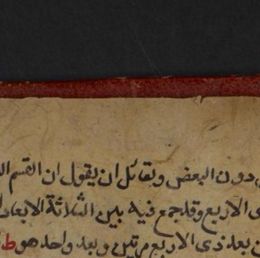 دون البعض ولقائل ان يقول ان القسم
الاربع وقد جمع فيه بين الثلاثة الابعاد
بعد ذى الاربع مرتين وبعد واحد هو ط